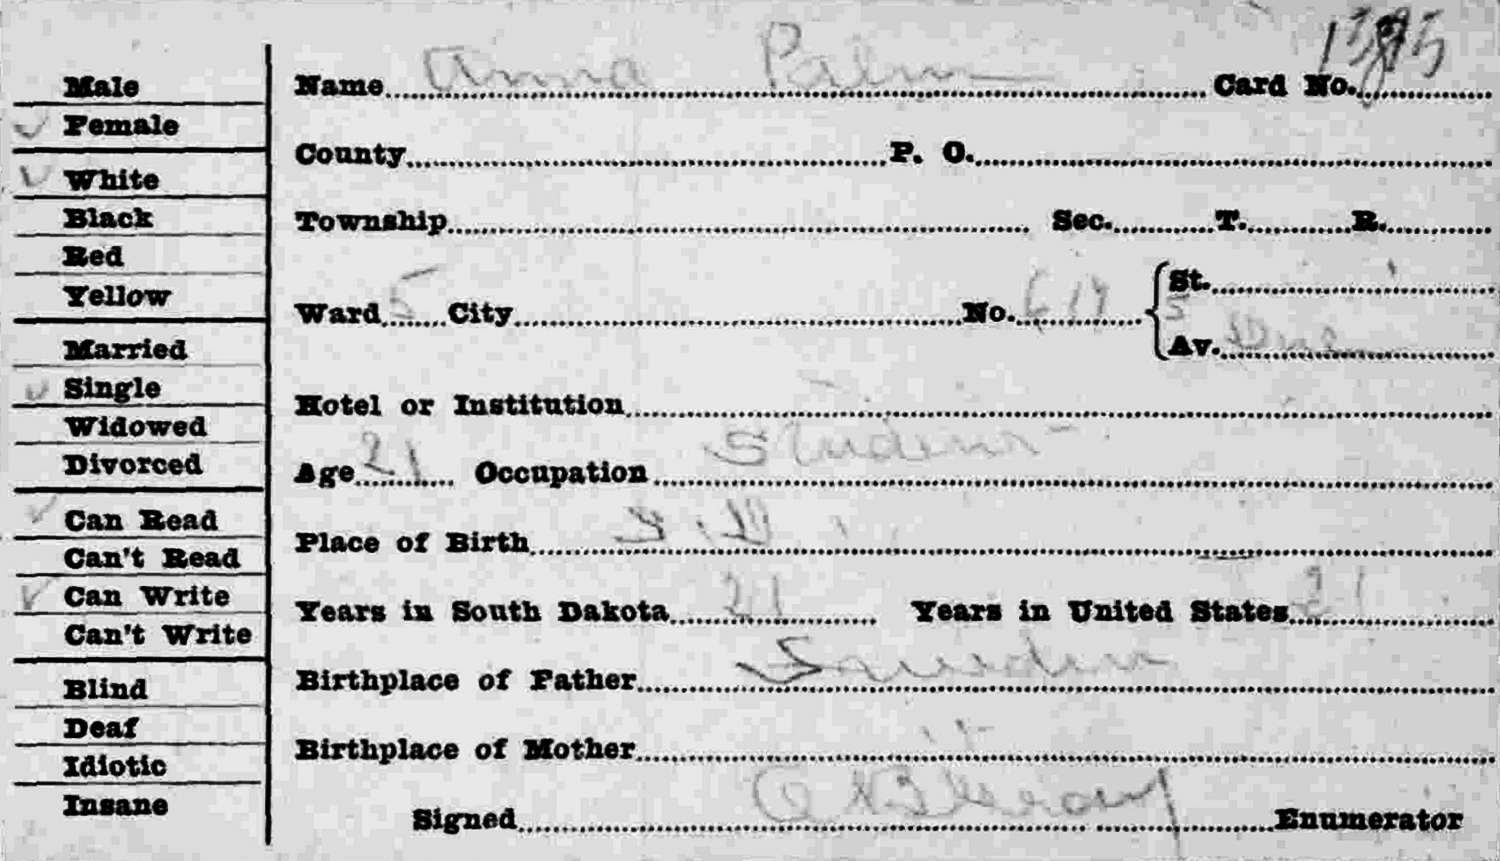 Male
Female
White
Black
Red
Yellow
Married
Single
Widowed
Divorced
Can Read
Can't Read
Can Write
Can't Write
Blind
Deaf
Idiotic
Insane
Name Anna Palm Card No.
County P. O.
Township Sec. T. R.
Ward 5 City No. 619 { St.
S
Av.
Hotel or Institution
Age 21 Occupation Student
Place of Birth S. D.
Years in South Dakota 21 Years in United States 21
Birthplace of Father Sweden
Birthplace of Mother "
Signed Enumerator